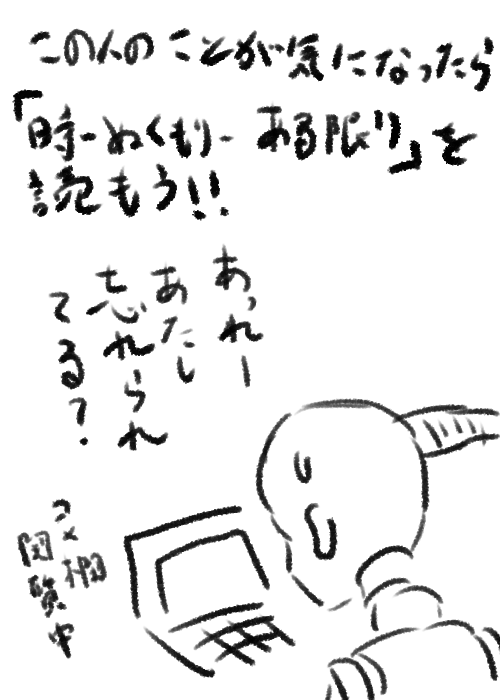 この人のことが気になったら
「時-ぬくもり-ある限り」を
読もう!!
あっれー
あたし
忘れられ
てる?
コメ欄
閲覧中